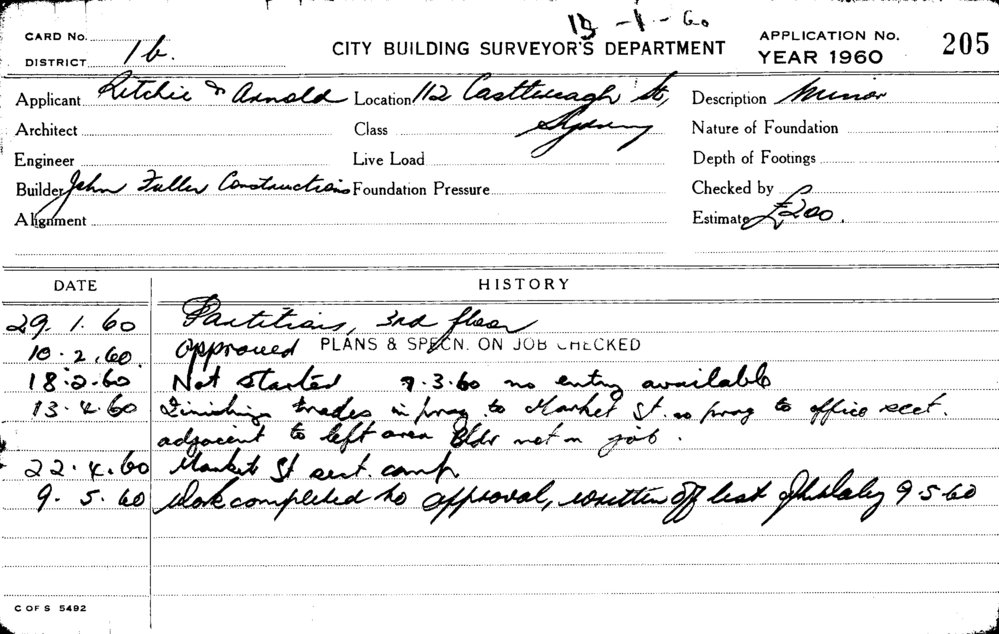 13 - 1 - 60
CARD No.
CITY BUILDING SURVEYOR'S DEPARTMENT
APPLICATION No. 205
DISTRICT 1b.
YEAR 1960
Applicant Ritchie & Arnold Location 112 Castlereagh St, Sydney Description Minor
Architect Class Nature of Foundation
Engineer Live Load Depth of Footings
Builder John Fuller Constructions Foundation Pressure Checked by
Alignment Estimate £200.
DATE HISTORY
29. 1. 60 Partitions, 3rd floor
10. 2. 60. Approved PLANS & SPECN. ON JOB CHECKED
18.2.60 Not started 9.3.60 no entry available
13.4.60 Finishing trades in prog. to Market St. no prog to office sect.
adjacent to left area Bldr not on job.
22.4.60 Market St sect. comp
9. 5. 60 Work completed to approval, written off list 9.5.60
C OF S 5492